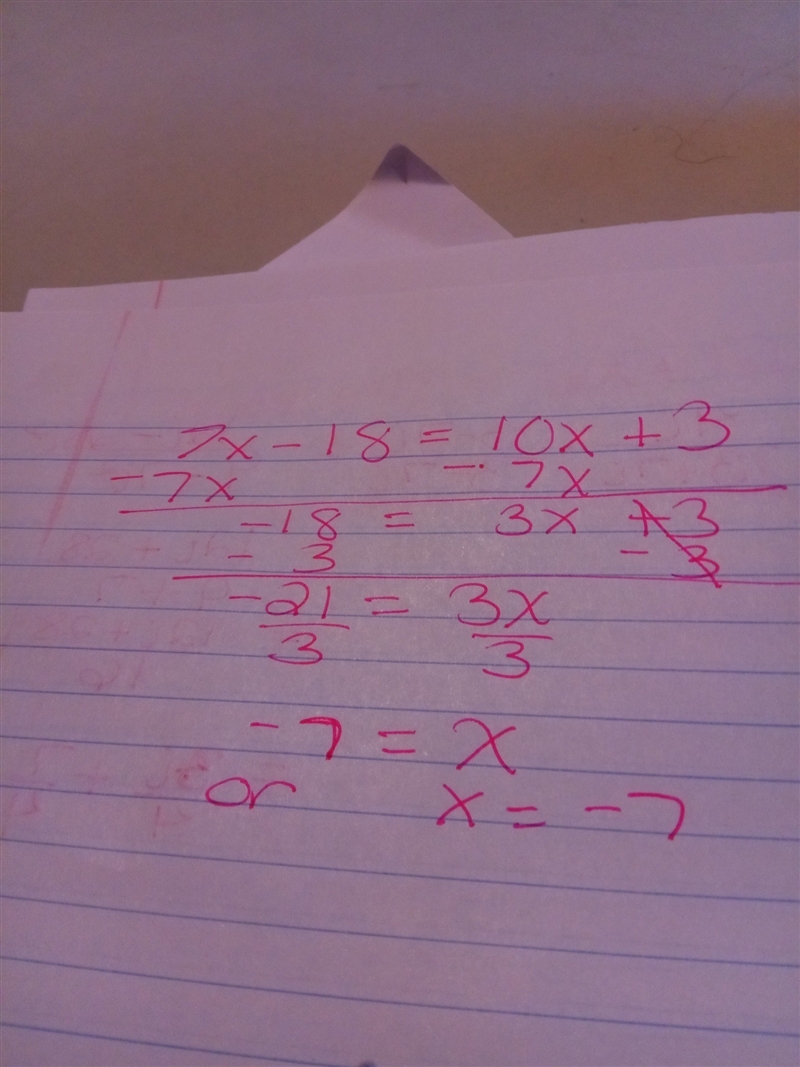 7x - 18 = 10x + 3
-7x - 7x
-18 = 3x + 3
- 3 - 3
-21 = 3x
3 3
-7 = x
or x = -7